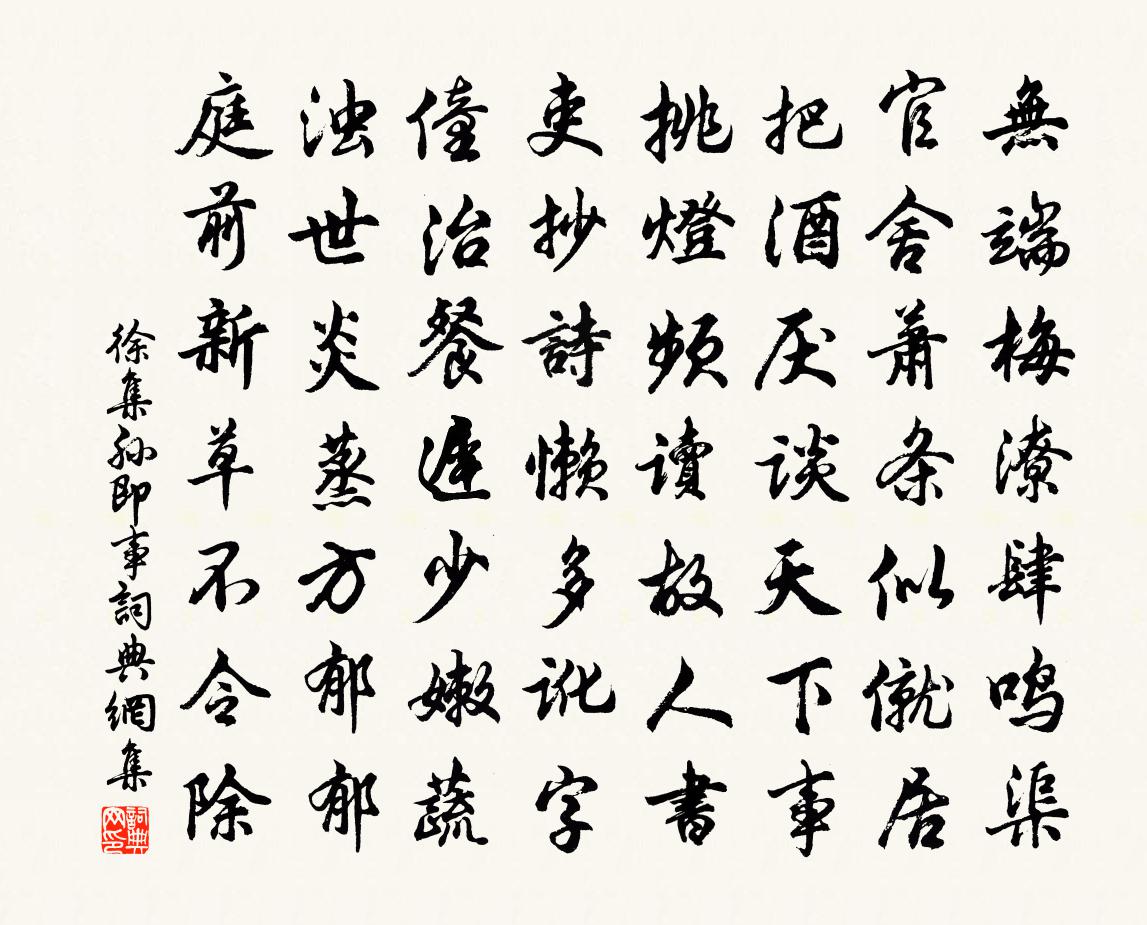 無端梅潦肆鸣渠
官舍蕭条似僦居
把酒厌談天下事
挑燈頻讀故人書
吏抄詩懶多訛字
僮治餐遲少嫩蔬
浊世炎蒸方郁郁
庭前新草不令除
徐集孙即事詞典網集
詞典网印